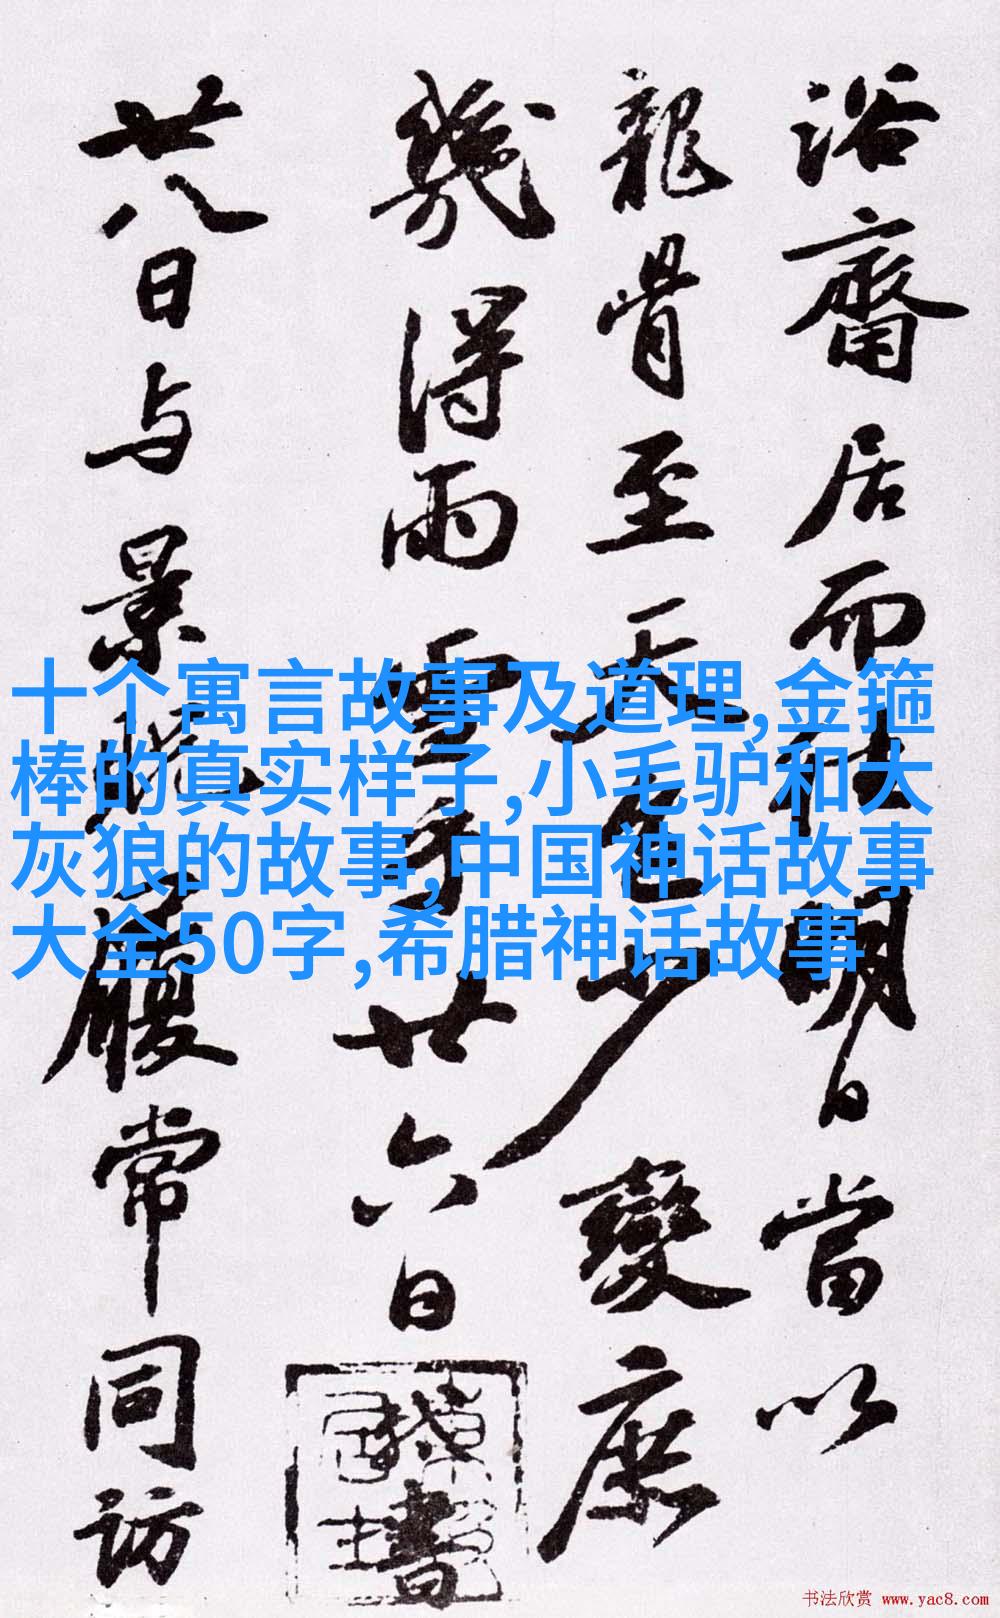 浴齋居而明日當以
龍骨至天色少變庶
幾得雨雪乎廿六日書
廿八日与景履常同訪
十个寓言故事及道理,金箍
棒的真实样子,小毛驴和大
灰狼的故事,中国神话故事
大全50字,希腊神话故事
书法欣赏 www.yac8.com